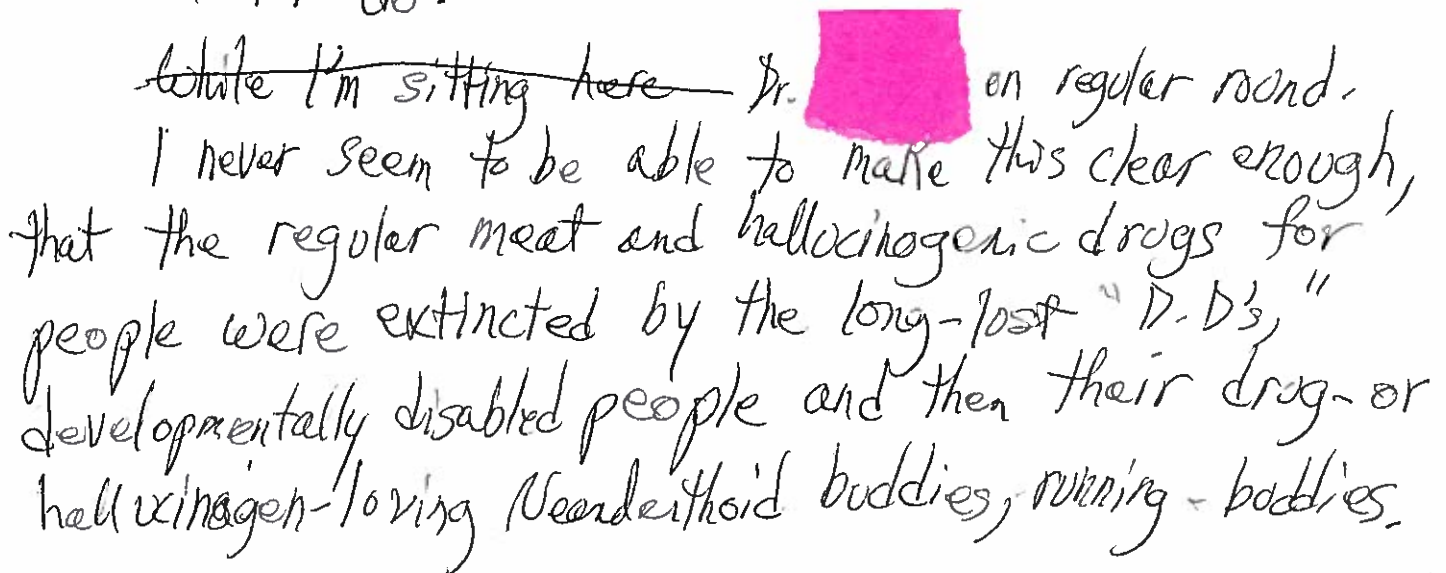 do.
While I'm sitting here Dr. on regular round.
I never seem to be able to make this clear enough,
that the regular meat and hallucinogenic drugs for
people were extincted by the long-lost "D.D's,"
developmentally disabled people and then their drug-or
hallucinagen-loving Neanderthoid buddies, running-buddies.